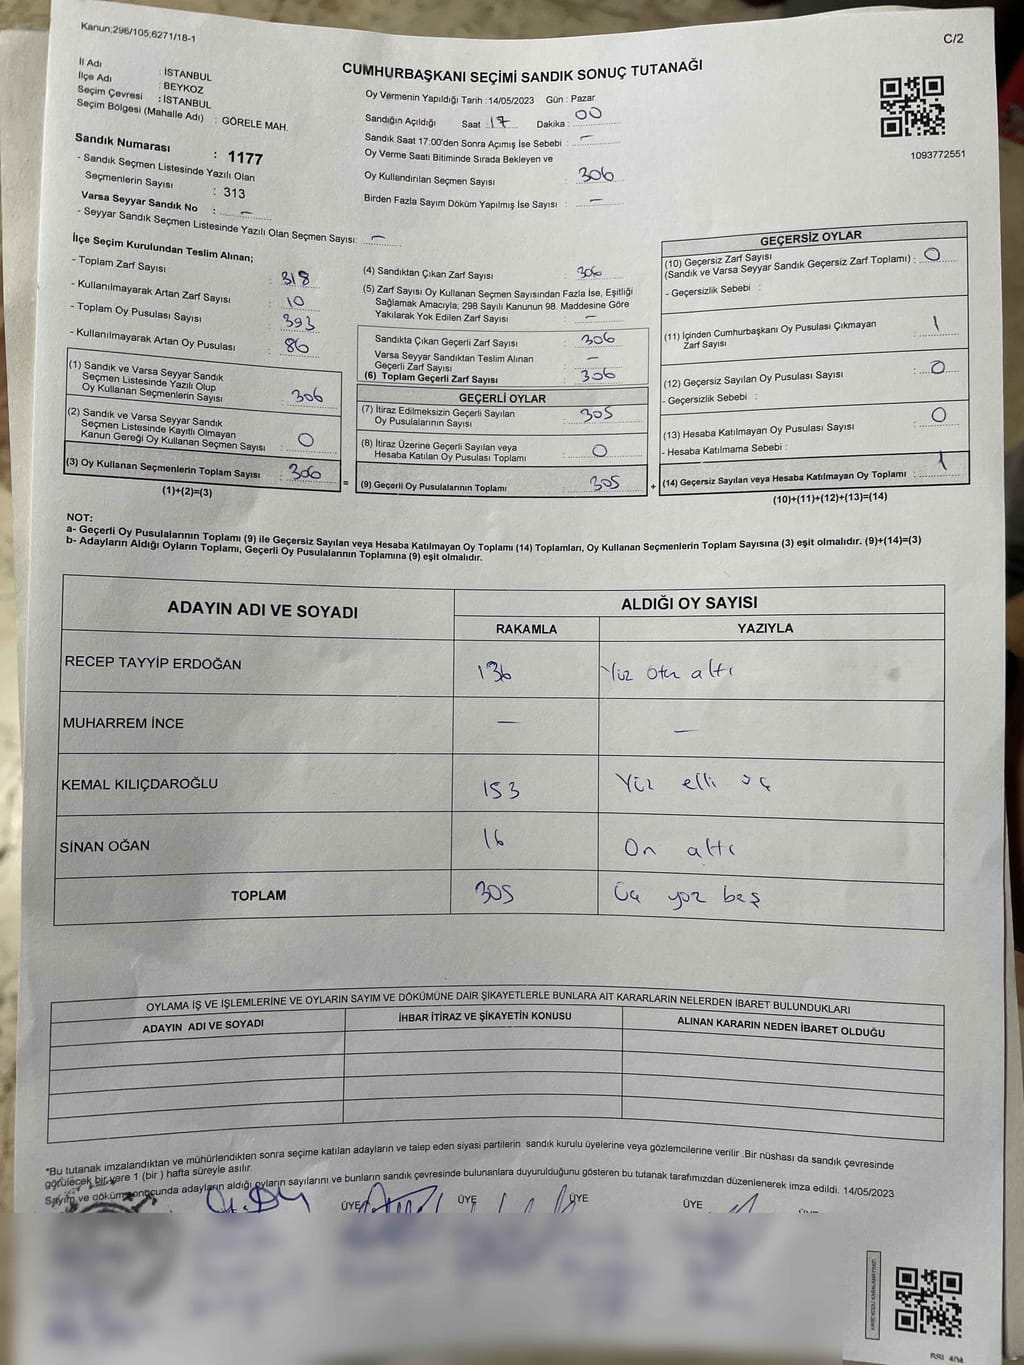 Kanun;298/105;6271/18-1
C/2
İl Adı : İSTANBUL
İlçe Adı : BEYKOZ
Seçim Çevresi : İSTANBUL
Seçim Bölgesi (Mahalle Adı) : GÖRELE MAH.
Sandık Numarası : 1177
- Sandık Seçmen Listesinde Yazılı Olan
Seçmenlerin Sayısı : 313
Varsa Seyyar Sandık No : —
- Seyyar Sandık Seçmen Listesinde Yazılı Olan Seçmen Sayısı: —
CUMHURBAŞKANI SEÇİMİ SANDIK SONUÇ TUTANAĞI
Oy Vermenin Yapıldığı Tarih : 14/05/2023 Gün : Pazar
Sandığın Açıldığı Saat : 17 Dakika : 00
Sandık Saat 17:00'den Sonra Açımış İse Sebebi : —
Oy Verme Saati Bitiminde Sırada Bekleyen ve
Oy Kullandırılan Seçmen Sayısı : 306
Birden Fazla Sayım Döküm Yapılmış İse Sayısı : —
1093772551
İlçe Seçim Kurulundan Teslim Alınan;
- Toplam Zarf Sayısı : 318
- Kullanılmayarak Artan Zarf Sayısı : 10
- Toplam Oy Pusulası Sayısı : 393
- Kullanılmayarak Artan Oy Pusulası : 86
(1) Sandık ve Varsa Seyyar Sandık
Seçmen Listesinde Yazılı Olup
Oy Kullanan Seçmenlerin Sayısı : 306
(2) Sandık ve Varsa Seyyar Sandık
Seçmen Listesinde Kayıtlı Olmayan
Kanun Gereği Oy Kullanan Seçmen Sayısı : 0
(3) Oy Kullanan Seçmenlerin Toplam Sayısı : 306
(1)+(2)=(3)
(4) Sandıktan Çıkan Zarf Sayısı : 306
(5) Zarf Sayısı Oy Kullanan Seçmen Sayısından Fazla İse, Eşitliği
Sağlamak Amacıyla, 298 Sayılı Kanunun 98. Maddesine Göre
Yakılarak Yok Edilen Zarf Sayısı : —
Sandıkta Çıkan Geçerli Zarf Sayısı : 306
Varsa Seyyar Sandıktan Teslim Alınan
Geçerli Zarf Sayısı : —
(6) Toplam Geçerli Zarf Sayısı : 306
GEÇERLİ OYLAR
(7) İtiraz Edilmeksizin Geçerli Sayılan
Oy Pusulalarının Sayısı : 305
(8) İtiraz Üzerine Geçerli Sayılan veya
Hesaba Katılan Oy Pusulası Toplamı : 0
= (9) Geçerli Oy Pusulalarının Toplamı : 305 +
GEÇERSİZ OYLAR
(10) Geçersiz Zarf Sayısı
(Sandık ve Varsa Seyyar Sandık Geçersiz Zarf Toplamı) : 0
- Geçersizlik Sebebi :
(11) İçinden Cumhurbaşkanı Oy Pusulası Çıkmayan
Zarf Sayısı : 1
(12) Geçersiz Sayılan Oy Pusulası Sayısı : 0
- Geçersizlik Sebebi :
(13) Hesaba Katılmayan Oy Pusulası Sayısı : 0
- Hesaba Katılmama Sebebi :
(14) Geçersiz Sayılan veya Hesaba Katılmayan Oy Toplamı : 1
(10)+(11)+(12)+(13)=(14)
NOT:
a- Geçerli Oy Pusulalarının Toplamı (9) ile Geçersiz Sayılan veya Hesaba Katılmayan Oy Toplamı (14) Toplamları, Oy Kullanan Seçmenlerin Toplam Sayısına (3) eşit olmalıdır. (9)+(14)=(3)
b- Adayların Aldığı Oyların Toplamı, Geçerli Oy Pusulalarının Toplamına (9) eşit olmalıdır.
ADAYIN ADI VE SOYADI ALDIĞI OY SAYISI
RAKAMLA YAZIYLA
RECEP TAYYİP ERDOĞAN 136 Yüz otu altı
MUHARREM İNCE — —
KEMAL KILIÇDAROĞLU 153 Yüz elli üç
SİNAN OĞAN 16 On altı
TOPLAM 305 Üç yüz beş
OYLAMA İŞ VE İŞLEMLERİNE VE OYLARIN SAYIM VE DÖKÜMÜNE DAİR ŞİKAYETLERLE BUNLARA AİT KARARLARIN NELERDEN İBARET BULUNDUKLARI
ADAYIN ADI VE SOYADI İHBAR İTİRAZ VE ŞİKAYETİN KONUSU ALINAN KARARIN NEDEN İBARET OLDUĞU
*Bu tutanak imzalandıktan ve mühürlendikten sonra seçime katılan adayların ve talep eden siyasi partilerin sandık kurulu üyelerine veya gözlemcilerine verilir .Bir nüshası da sandık çevresinde
görülecek bir yere 1 (bir ) hafta süreyle asılır.
Sayım ve döküm sonucunda adayların aldığı oyların sayılarını ve bunların sandık çevresinde bulunanlara duyurulduğunu gösteren bu tutanak tarafımızdan düzenlenerek imza edildi. 14/05/2023
ÜYE ÜYE ÜYE ÜYE